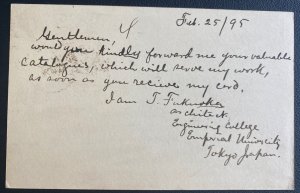 Feb. 25/95
Gentlemen,
would you kindly forward me your valuable
catalogues, which will serve my work,
as soon as you recieve my cord.
I am T. Fukuoka
architect.
Engineering College
Emperial University
Tokyo Japan.